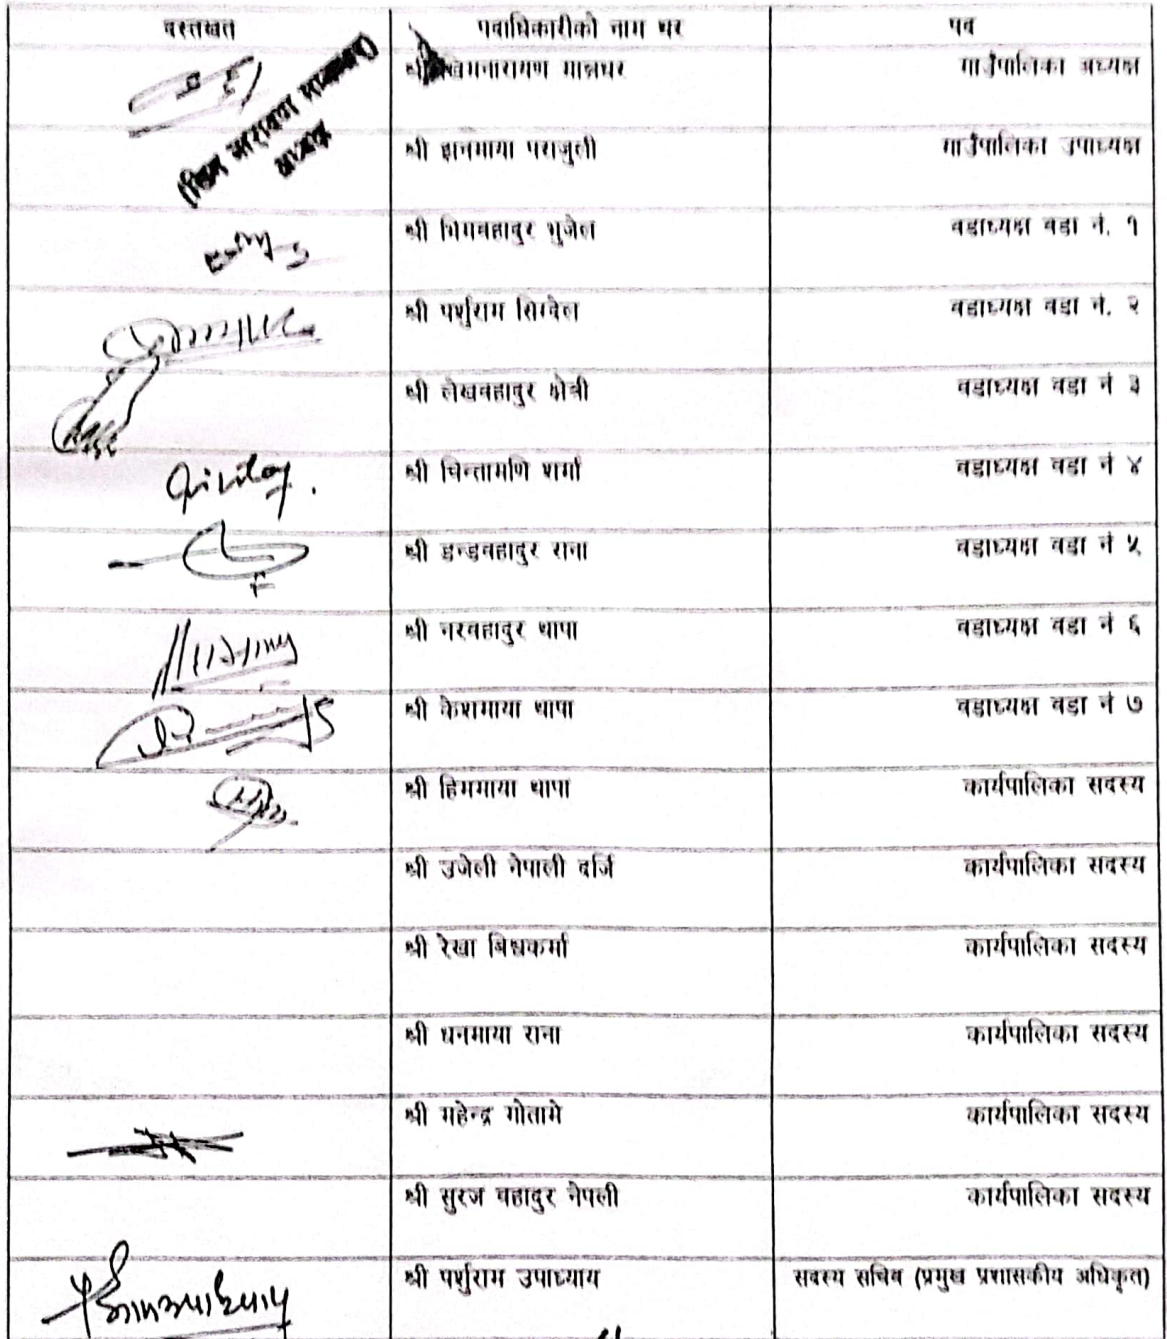 दस्तखत पदाधिकारीको नाम थर पद
श्री खिमनारायण मानन्धर गाउँपालिका अध्यक्ष
(खिम नारायण मानन्धर)
अध्यक्ष
श्री ज्ञानमाया पराजुली गाउँपालिका उपाध्यक्ष
श्री भिमबहादुर भुजेल वडाध्यक्ष वडा नं. १
श्री पर्शुराम सिग्देल वडाध्यक्ष वडा नं. २
श्री लेखबहादुर क्षेत्री वडाध्यक्ष वडा नं ३
श्री चिन्तामणि शर्मा वडाध्यक्ष वडा नं ४
श्री डन्डबहादुर राना वडाध्यक्ष वडा नं ५
श्री नरबहादुर थापा वडाध्यक्ष वडा नं ६
श्री केशमाया थापा वडाध्यक्ष वडा नं ७
श्री हिममाया थापा कार्यपालिका सदस्य
श्री उजेली नेपाली दर्जि कार्यपालिका सदस्य
श्री रेखा बिश्वकर्मा कार्यपालिका सदस्य
श्री धनमाया राना कार्यपालिका सदस्य
श्री महेन्द्र गोतामे कार्यपालिका सदस्य
श्री सुरज बहादुर नेपली कार्यपालिका सदस्य
श्री पर्शुराम उपाध्याय सदस्य सचिव (प्रमुख प्रशासकीय अधिकृत)